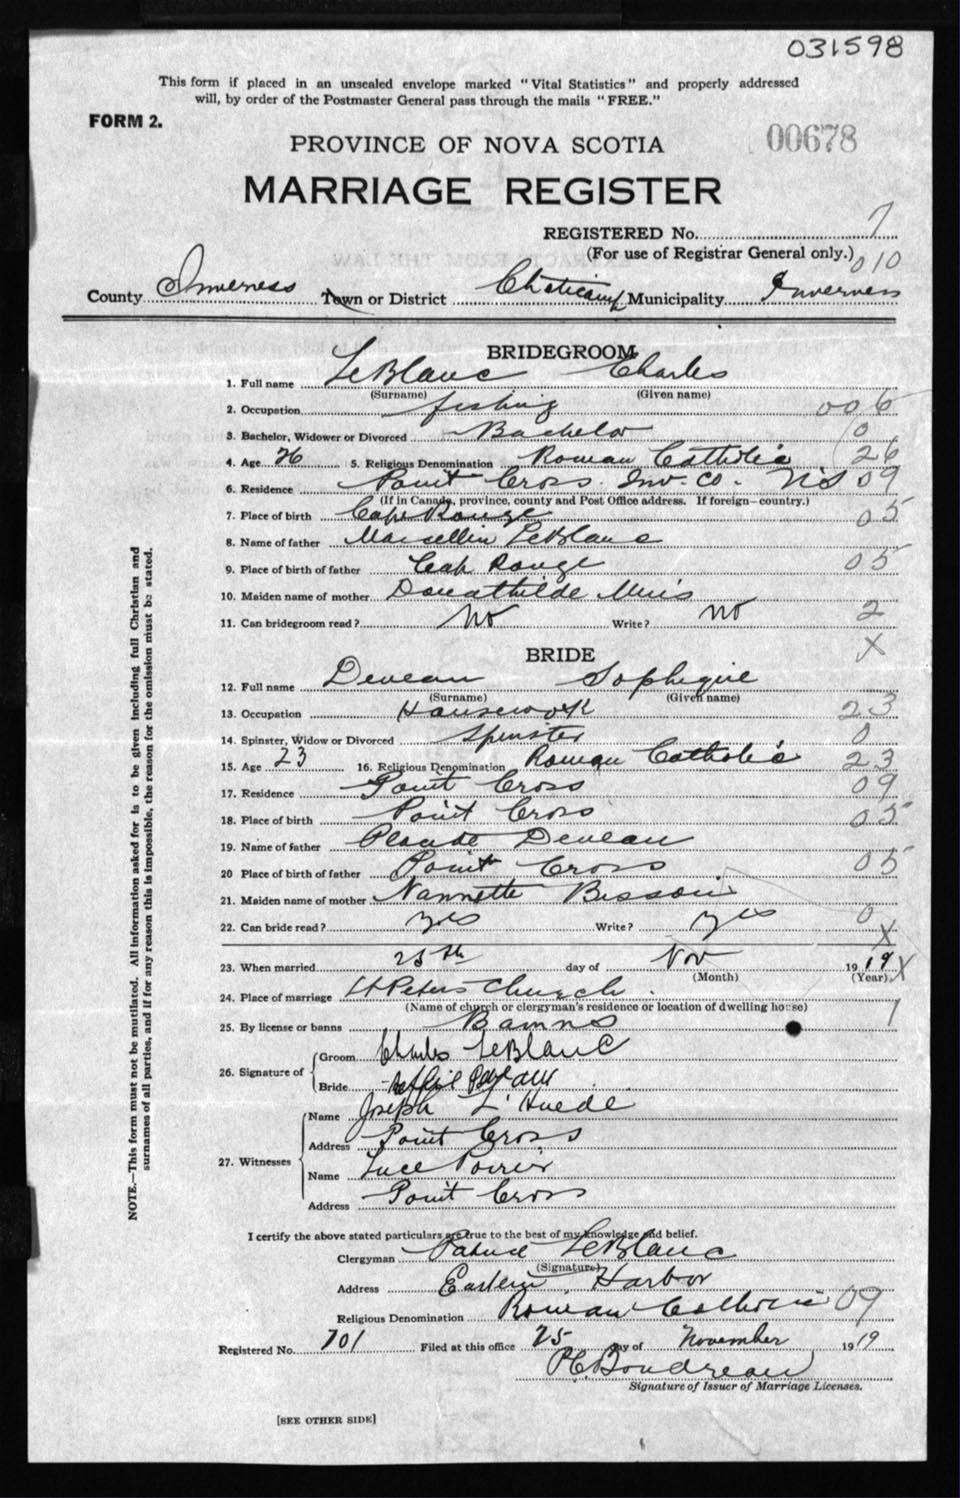 031598
This form if placed in an unsealed envelope marked "Vital Statistics" and properly addressed
will, by order of the Postmaster General pass through the mails "FREE."
FORM 2.
00678
PROVINCE OF NOVA SCOTIA
MARRIAGE REGISTER
REGISTERED No. 7
(For use of Registrar General only.) 010
County Inverness Town or District Cheticamp Municipality Inverness
BRIDEGROOM
1. Full name LeBlanc Charles
(Surname) (Given name)
2. Occupation fishing 006
3. Bachelor, Widower or Divorced Bachelor 0
4. Age 26 5. Religious Denomination Roman Catholic 26
6. Residence Point Cross Inv. Co. N.S 09
(If in Canada, province, county and Post Office address. If foreign—country.)
7. Place of birth Cap Rouge 05
8. Name of father Marcellin LeBlanc
9. Place of birth of father Cap Rouge 05
10. Maiden name of mother Donathilde Muis
11. Can bridegroom read? No Write? No 2
X
BRIDE
12. Full name Deveau Sophique
(Surname) (Given name)
13. Occupation Housework 23
14. Spinster, Widow or Divorced Spinster 0
15. Age 23 16. Religious Denomination Roman Catholic 23
17. Residence Point Cross 09
18. Place of birth Point Cross 05
19. Name of father Placide Deveau
20 Place of birth of father Point Cross 05
21. Maiden name of mother Nannette Bisson
22. Can bride read? Yes Write? Yes 0
X
23. When married 25th day of Nov 1919 X
(Month) (Year)
24. Place of marriage St Peters Church
(Name of church or clergyman's residence or location of dwelling house) 1
25. By license or banns Banns
26. Signature of Groom Charles LeBlanc
Bride
27. Witnesses
Name Joseph L'Huedé
Address Point Cross
Name Luce Poirier
Address Point Cross
I certify the above stated particulars are true to the best of my knowledge and belief.
Clergyman Patrice LeBlanc
(Signature)
Address Eastern Harbor
Religious Denomination Roman Catholic 09
Registered No. 701 Filed at this office 25 day of November 1919
P.C. Boudreau
Signature of Issuer of Marriage Licenses.
[SEE OTHER SIDE]
NOTE.—This form must not be mutilated. All information asked for is to be given including full Christian and
surnames of all parties, and if for any reason this is impossible, the reason for the omission must be stated.